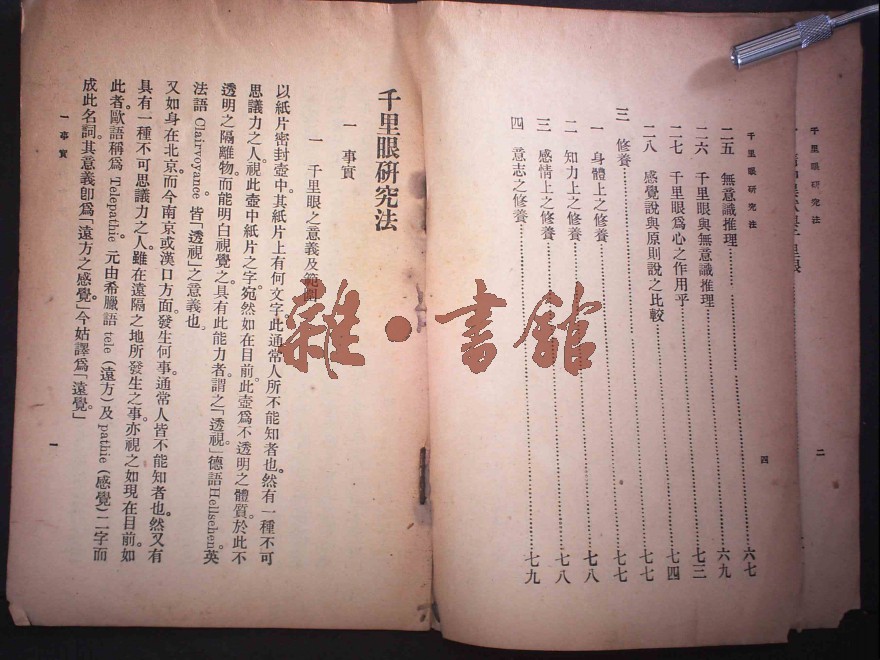 千里眼研究法
二
千里眼研究法
二五　無意識推理……六七
二六　千里眼與無意識推理……六九
二七　千里眼爲心之作用乎……七三
二八　感覺說與原則說之比較……七四
三　修養……七七
一　身體上之修養……七七
二　知力上之修養……七八
三　感情上之修養……七八
四　意志之修養……七九
四
千里眼研究法
一　事實
一　千里眼之意義及範圍
以紙片密封壺中。其紙片上有何文字此通常人所不能知者也。然有一種不可
思議力之人。視此壺中紙片之字宛然如在目前。此壺爲不透明之體質。於此不
透明之隔離物。而能明白視覺之。具有此能力者。謂之「透視」德語Hellsehen英
法語 Clairvoyance 皆「透視」之意義也。
又如身在北京。而今南京或漢口方面。發生何事。通常人皆不能知者也。然又有
具有一種不可思議力之人。雖在遠隔之地所發生之事。亦視之如現在目前。如
此者。歐語稱爲 Telepathie 。元由希臘語 tele（遠方）及 pathie（感覺）二字而
成此名詞。其意義卽爲「遠方之感覺。」今姑譯爲「遠覺。」
一 事實
一
雜·書館